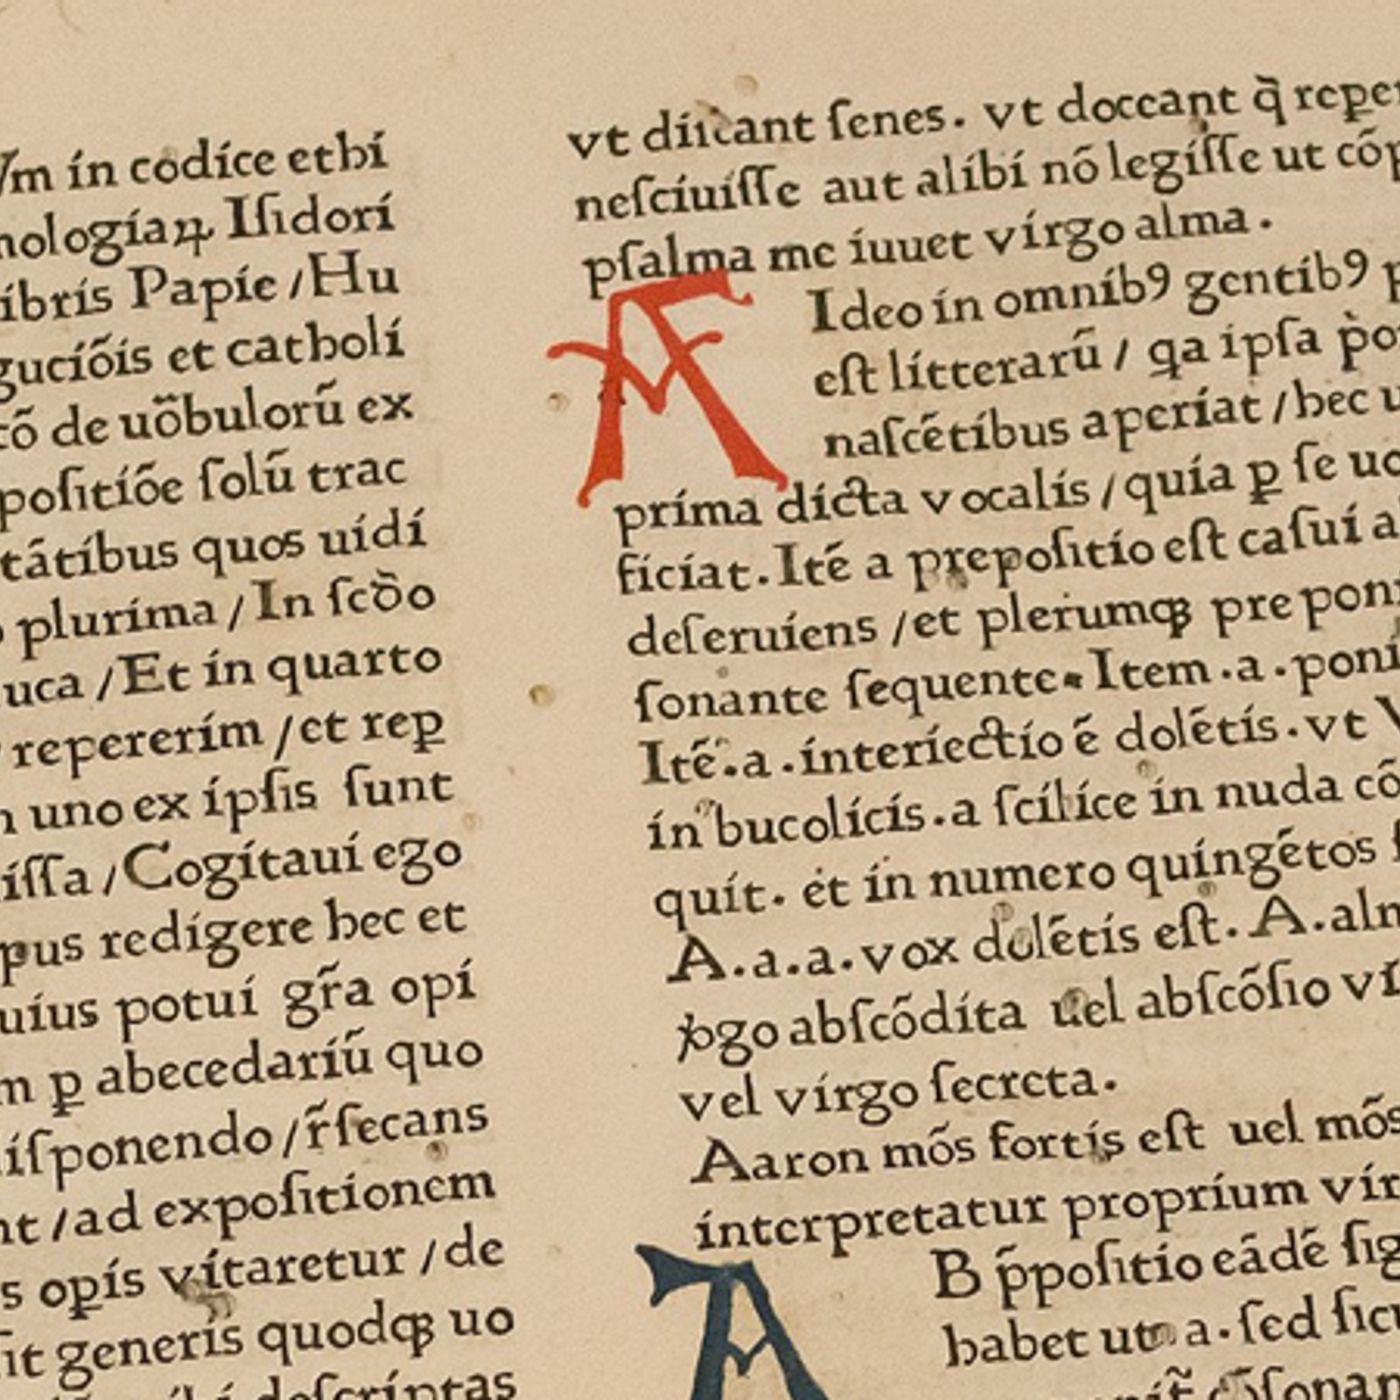 Vm ín codíce ethí
mologíaꝝ Iſidorí
libris Papíe / Hu
gucíõis et catholí
cõ de uõbulorũ ex
poſitíõe ſolũ trac
tãtíbus quos uídí
plurima / In ſcd̃o
uca / Et ín quarto
repererím / et rep̲
uno ex ípſis ſunt
iſſa / Cogítauí ego
pus redígere hec et
uíus potuí gr̃a opí
m ꝑ abecedaríũ quo
iſponendo / r̃ſecans
nt / ad expoſitionem
s opís vítaretur / de
ſit generís quodqꝫ uo
deſcríptas
vt diıcant ſenes. vt doceant q̃ reper
neſcíuíſſe aut alíbí nõ legíſſe ut cõp
pſalma me íuuet vírgo alma.
A Ideo ín omníbꝰ gentíbꝰ p
eſt lítterarũ / qa ipſa p̀o
naſcẽtíbus aperíat / hec u
príma dícta vocalís / quía ꝑ ſe uo
ficíat. Itẽ a prepoſitío eſt caſuí a
deſeruíens / et plerumqꝫ preponí
ſonante ſequente. Item .a. poni
Itẽ .a. ínteríectío ẽ dolẽtís. vt V
ín bucolícís. a ſcílíce ín nuda cõ
quít. et ín numero quíngẽtos
A.a.a. vox dolẽtís eſt. A. alm
ꝟgo abſcõdíta uel abſcõſio ví
vel vírgo ſecreta.
Aaron mõs fortís eſt uel mõs
ínterpretatur propríum vír
A B p̃poſitío eãdẽ ſig
habet ut a. ſed ſicu